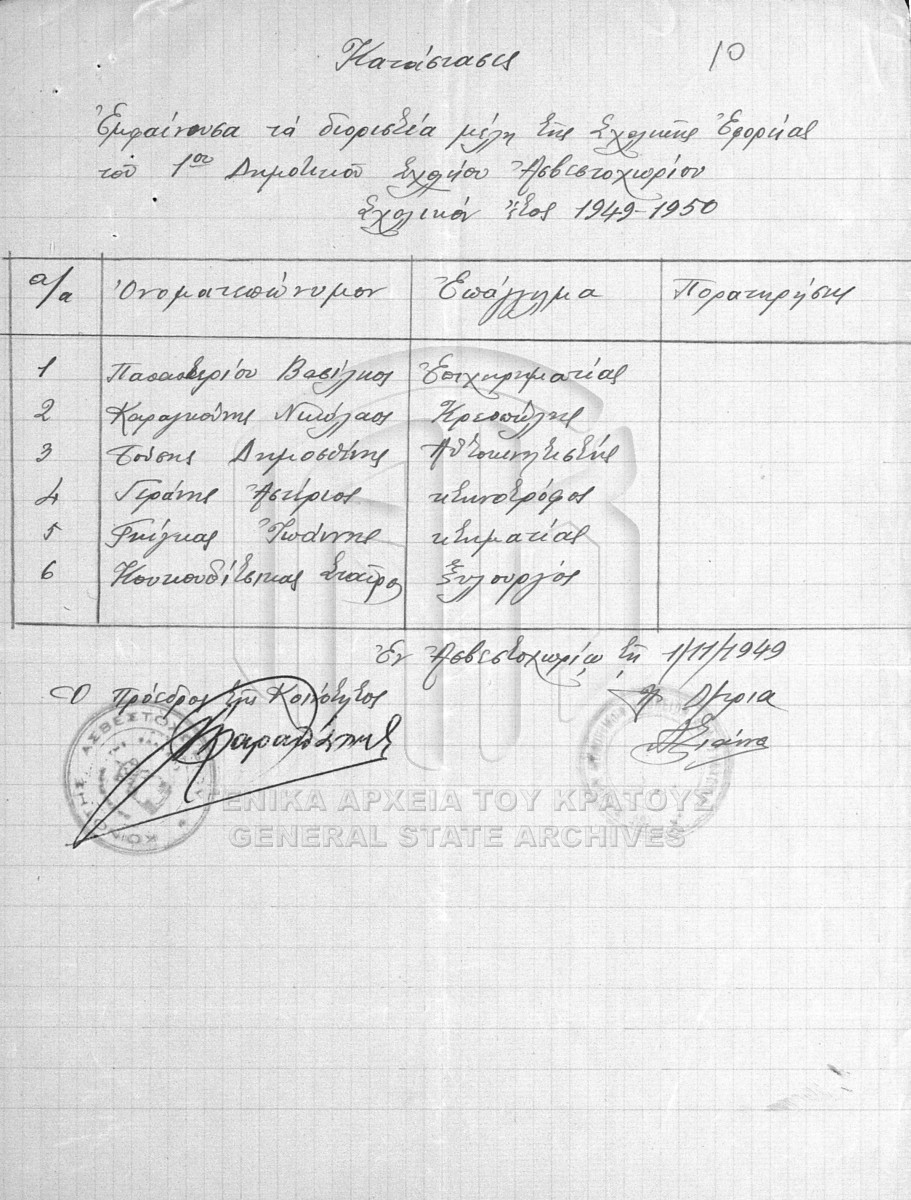 Κατάστασις
10
Ἐμφαίνουσα τά διοριστέα μέλη τῆς Σχολικῆς Ἐφορείας
τοῦ 1ου Δημοτικοῦ Σχολείου Ἀσβεστοχωρίου
Σχολικόν ἔτος 1949-1950
α/α Ὀνοματεπώνυμον Ἐπάγγελμα Παρατηρήσεις
1 Παπαστερίου Βασίλειος Ἐπιχειρηματίας
2 Καραγκούνης Νικόλαος Κρεοπώλης
3 Δημοσθένης Αὐτοκινητιστής
4 Γεράνης Ἀστέριος κτηνοτρόφος
5 Γκόγκας Ἰωάννης κτηματίας
6 Κουκουδίτσικας Σταῦρος ξυλουργός
Ἐν Ἀσβεστοχωρίῳ τῇ 1/11/1949
Ὁ Πρόεδρος τῆς Κοινότητος
ΚΟΙΝΟΤΗΣ ΑΣΒΕΣΤΟΧΩΡΙΟΥ
ΓΕΝΙΚΑ ΑΡΧΕΙΑ ΤΟΥ ΚΡΑΤΟΥΣ
GENERAL STATE ARCHIVES